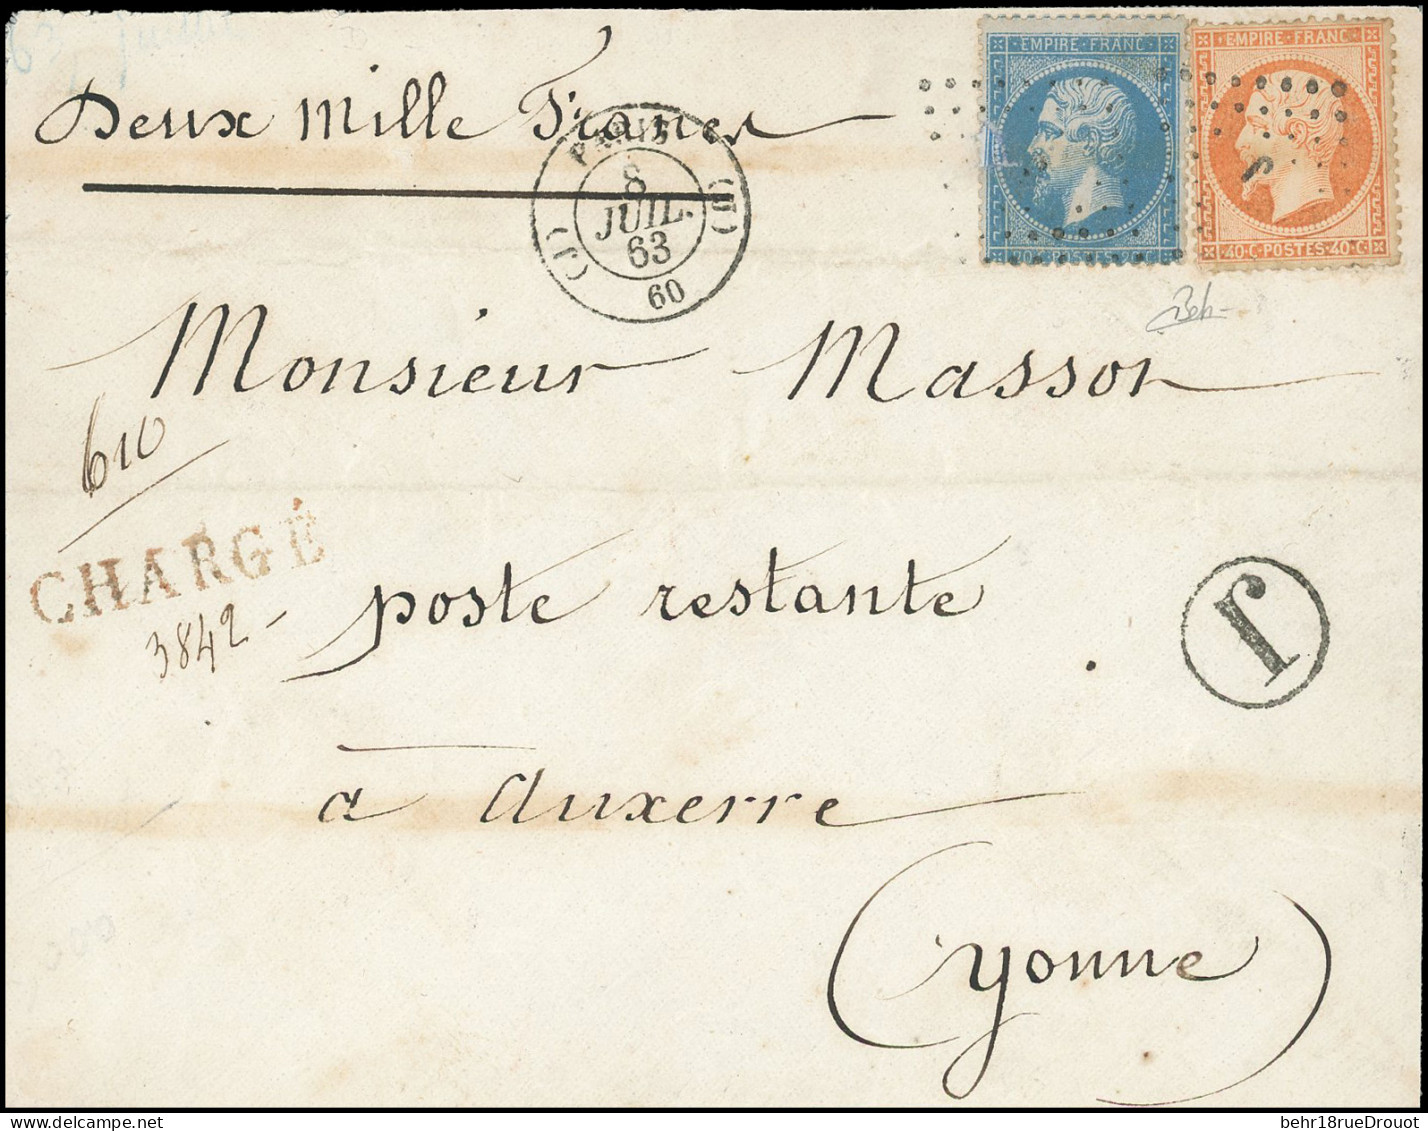 63 Juillet
Deux Mille Francs
EMPIRE·FRANC
20·C·POSTES·20·C
EMPIRE·FRANC
40·C·POSTES·40·C
J
PARIS
(J)
(J)
8
JUIL.
63
60
Behr
Monsieur Masson
610
CHARGÉ
3842
poste restante
J
a Auxerre
(yonne)
behr18rueDrouot